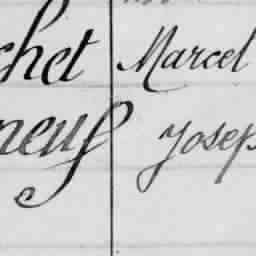 chet Marcel
neuf Josep